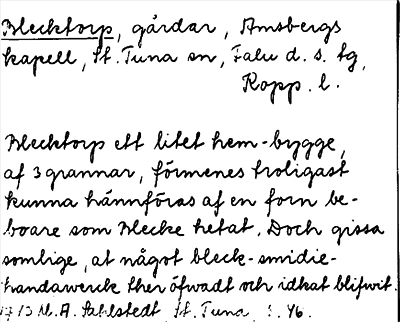 Blecktorp, gårdar, Amsbergs
kapell, St. Tuna sn, Falu d. s. tg,
Kopp. l.
Blecktorp ett litet hem-bygge,
af 3 grannar, förmenes troligast
kunna hännföras af en forn be-
boare som Blecke hetat. Doch gissa
somlige, at något bleck-smidie-
handawerck ther öfwadt och idkat blifwit.
1713 M. A. Sahlstedt St. Tuna s. 46.